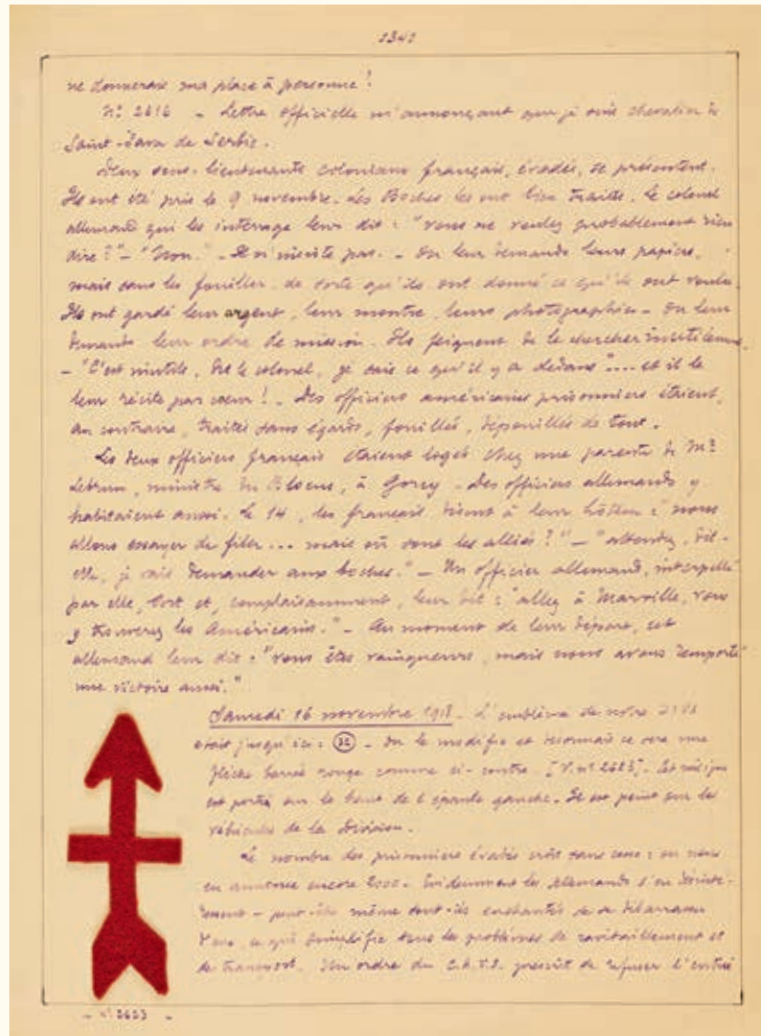 1341
ne donnerais ma place à personne !
N° 2616 - Lettre officielle m'annonçant que je suis chevalier de
Saint-Sava de Serbie.
Deux sous-lieutenants coloniaux français, évadés, se présentent.
Ils ont été pris le 9 novembre. Les Boches les ont bien traités. Le colonel
allemand qui les interroge leur dit : "vous ne voulez probablement rien
dire ?" - "Non." - Il n'insiste pas. - On leur demande leurs papiers,
mais sans les fouiller, de sorte qu'ils ont donné ce qu'ils ont voulu.
Ils ont gardé leur argent, leur montre, leurs photographies - On leur
demande leur ordre de mission. Ils feignent de le chercher inutilement.
- "C'est inutile, dit le colonel, je sais ce qu'il y a dedans".... et il le
leur récite par cœur ! - Des officiers américains prisonniers étaient,
au contraire, traités sans égards, fouillés, dépouillés de tout.
Les deux officiers français étaient logés chez une parente de Mr
Lebrun, ministre du Blocus, à Gorcy - Des officiers allemands y
habitaient aussi. Le 14, les français disent à leur hôtesse : "nous
allons essayer de filer... mais où sont les alliés ?" - "attendez, dit-
elle, je vais demander aux boches." - Un officier allemand, interpellé
par elle, sort et, complaisamment, leur dit : "allez à Marville, vous
y trouverez les Américains." - Au moment de leur départ, cet
allemand leur dit : "vous êtes vainqueurs, mais nous avons remporté
une victoire aussi."
Samedi 16 novembre 1918. - L'emblème de notre
était jusqu'ici : (32) - On le modifie et désormais ce sera une
flèche barrée rouge comme ci-contre [V. n° 2623]. Cet insigne
est porté sur le haut de l'épaule gauche. Il est peint sur les
véhicules de la division.
Le nombre des prisonniers évadés croît sans cesse : on nous
en annonce encore 2000 - Evidemment les Allemands s'en désinté-
ressent - peut-être même sont-ils enchantés de se débarrasser
d'eux, ce qui simplifie tous les problèmes de ravitaillement et
de transport. Un ordre du prescrit de refuser l'entrée
- n° 2623 -